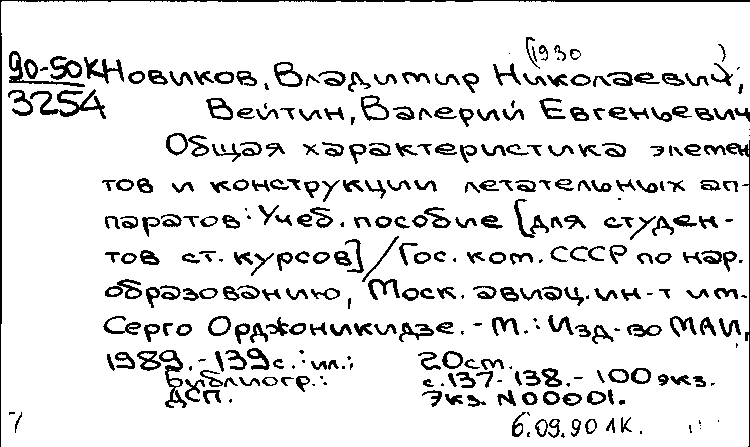 (1930 )
90-50К Новиков, Владимир Николаевич,
3254 Вейтин, Валерий Евгеньевич
Общая характеристика элемен
тов и конструкции летательных ап-
паратов: Учеб. пособие [для студен-
тов ст. курсов] / Гос. ком. СССР по нар.
образованию, Моск. авиац. ин-т им.
Серго Орджоникидзе. - М.: Изд-во МАИ,
1989. - 139 с.: ил.; 20 см.
Библиогр.: с. 137-138. - 100 экз.
ДСП. Экз. N 00001.
6.09.90 1К.